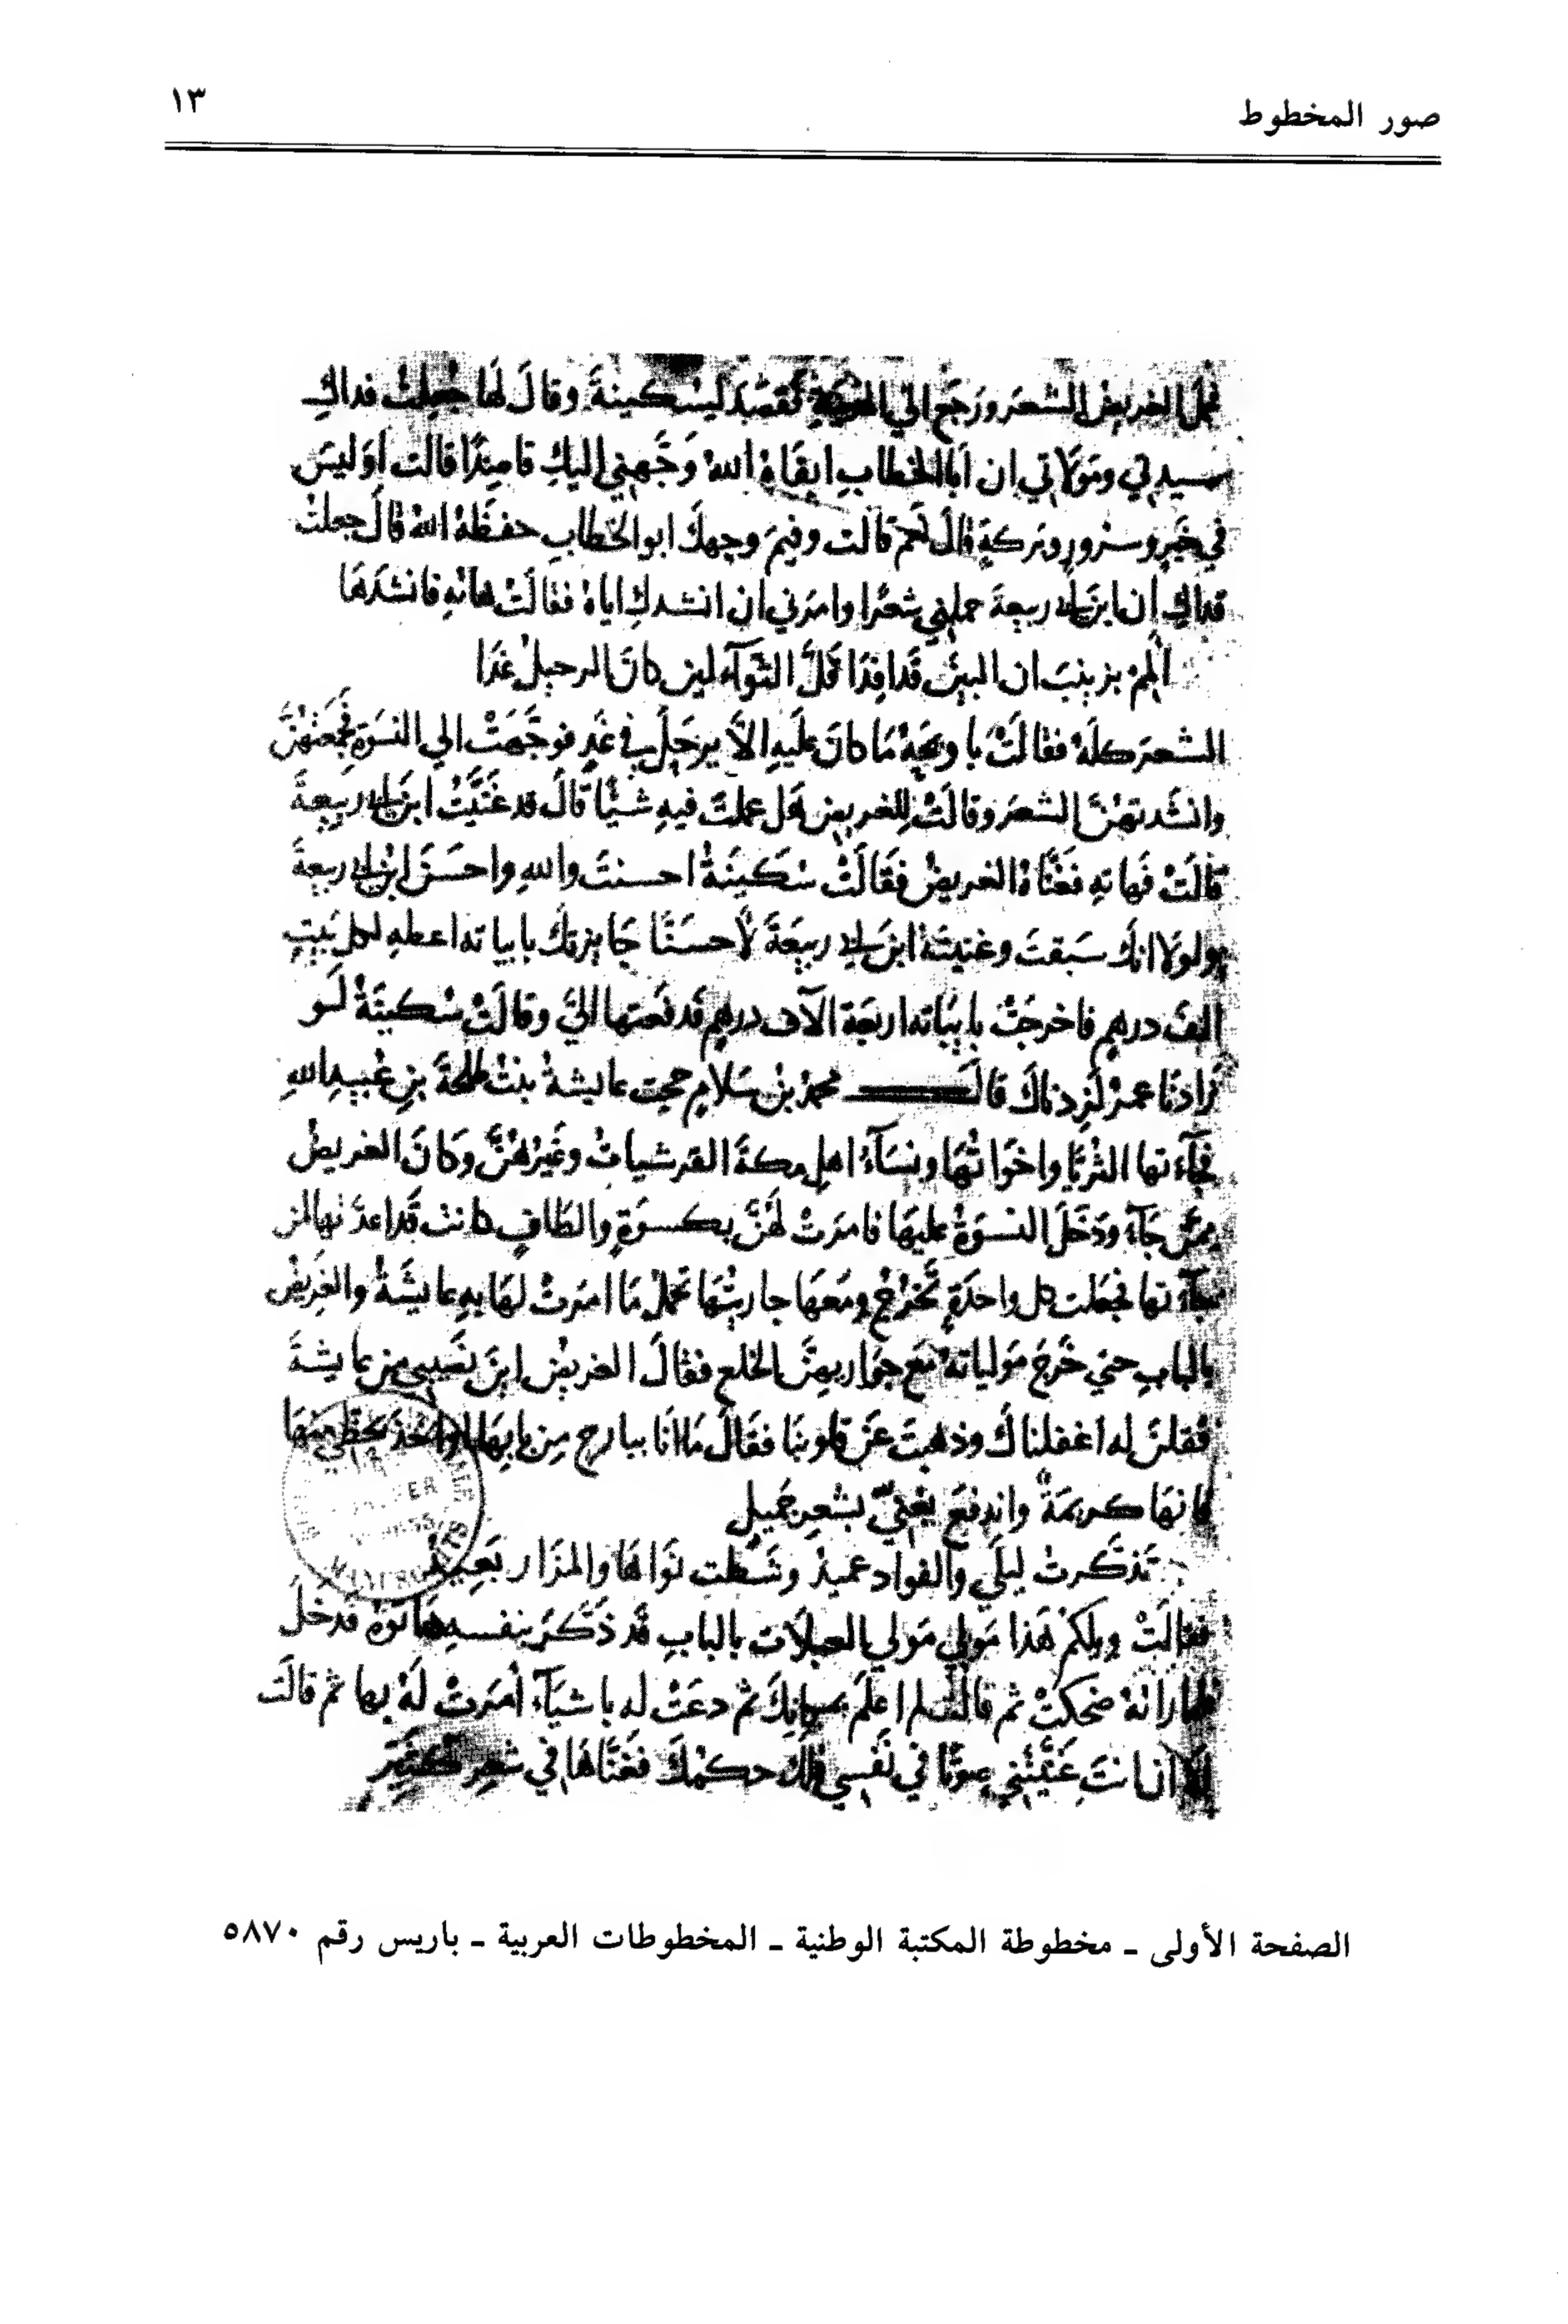 صور المخطوط
١٣
فحمل الغريض الشعر ورجع الي المدينة فقصد لسكينة وقال لها جعلت فداك
سيدتي ومولاتي ان ابا الخطاب ابقاه الله وجهني اليك قاصدا قالت اوليس
في خير وسرور وتركة قال نعم قالت وفيم وجهك ابو الخطاب حفظه الله قال جعلت
فداك ان ابن ابي ربيعة حملني شعرا وامرني ان انشدك اياه فقالت هاته فانشدها
المم بزينب ان البين قد افدا قل الثوآء لين كان الرحيل غدا
الشعر كله فقالت يا ويحه ما كان عليه الا يرحل في غد فوجهت الي النسوة فجمعتهن
وانشدتهن الشعر وقالت للغريض هل عملت فيه شيئا قال قد غنيت ابن ابي ربيعة
قالت فهاته فغناه الغريض فقالت سكينة احسنت والله واحسن ابن ابي ربيعة
ولولا انك سبقت وغنيته ابن ابي ربيعة لاحسنا جايزتك بابياته اعطه لكل بيت
الف درهم فاخرجت بابياته اربعة الآف درهم فدفعتها الي وقالت سكينة لو
زادنا عمر لزدناك قال محمد بن سلام حجت عايشة بنت طلحة بن عبيد الله
فجآءتها الثريا واخواتها ونسآء اهل مكة القرشيات وغيرهن وكان الغريض
ممن جآء ودخل النسوة عليها فامرت لهن بكسوة والطاف كانت قد اعدتها لمن
جآءتها فجعلت كل واحدة تخرج ومعها جاريتها تحمل ما امرت لها به عايشة والغريض
بالباب حتي خرج مولياته مع جواريهن الخلع فقال الغريض اين نصيبي من عايشة
فقلن له اغفلناك وذهبت عن قلوبنا فقال ما انا ببارح من بابها او اخذ بحظي منها
فانها كريمة واندفع يغني بشعر جميل
تذكرت ليلي والفواد عميد وشطت نواها والمزار بعيد
فقالت ويلكم هذا مولي مولي العبلات بالباب قد ذكر بنفسه هاتوه فدخل
فلما راته ضحكت ثم قالت لم اعلم بمكانك ثم دعت له باشيآء امرت له بها ثم قالت
له ان انت غنيتني صوتا في نفسي فلك حكمك فغناها في شعر كثير
الصفحة الأولى ـ مخطوطة المكتبة الوطنية ـ المخطوطات العربية ـ باريس رقم ٥٨٧٠